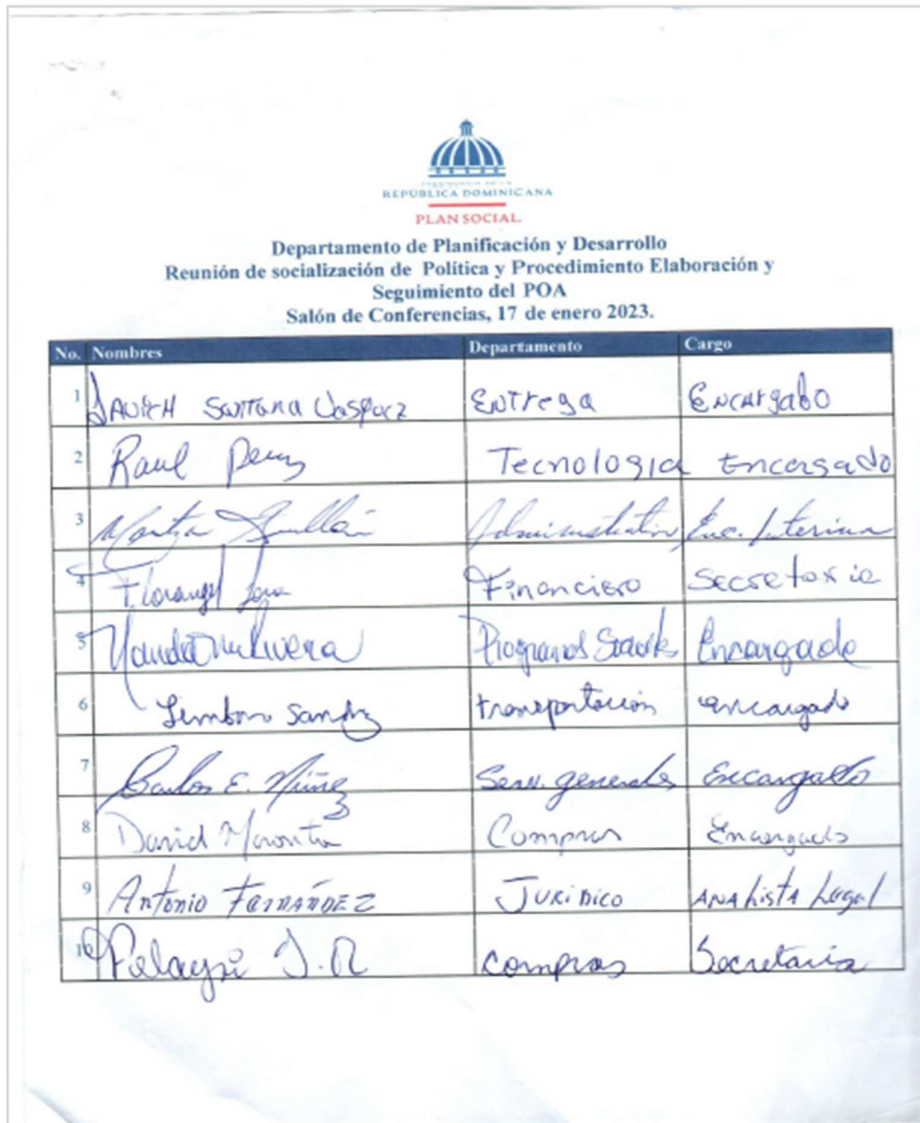 REPÚBLICA DOMINICANA
PLAN SOCIAL
Departamento de Planificación y Desarrollo
Reunión de socialización de Política y Procedimiento Elaboración y
Seguimiento del POA
Salón de Conferencias, 17 de enero 2023.
No. Nombres Departamento Cargo
1 Santana Entrega Encargado
2 Raul Tecnologia Encargado
3 Enc. Interina
4 Florangel Financiero Secretaria
5 Rivera Programas Sociales Encargada
6 transportación encargado
7 Carlos E. Núñez Serv. generales Encargado
8 David Compras Encargado
9 Antonio FERNÁNDEZ JURiDico ANAListA Legal
10 J.R compras Secretaria